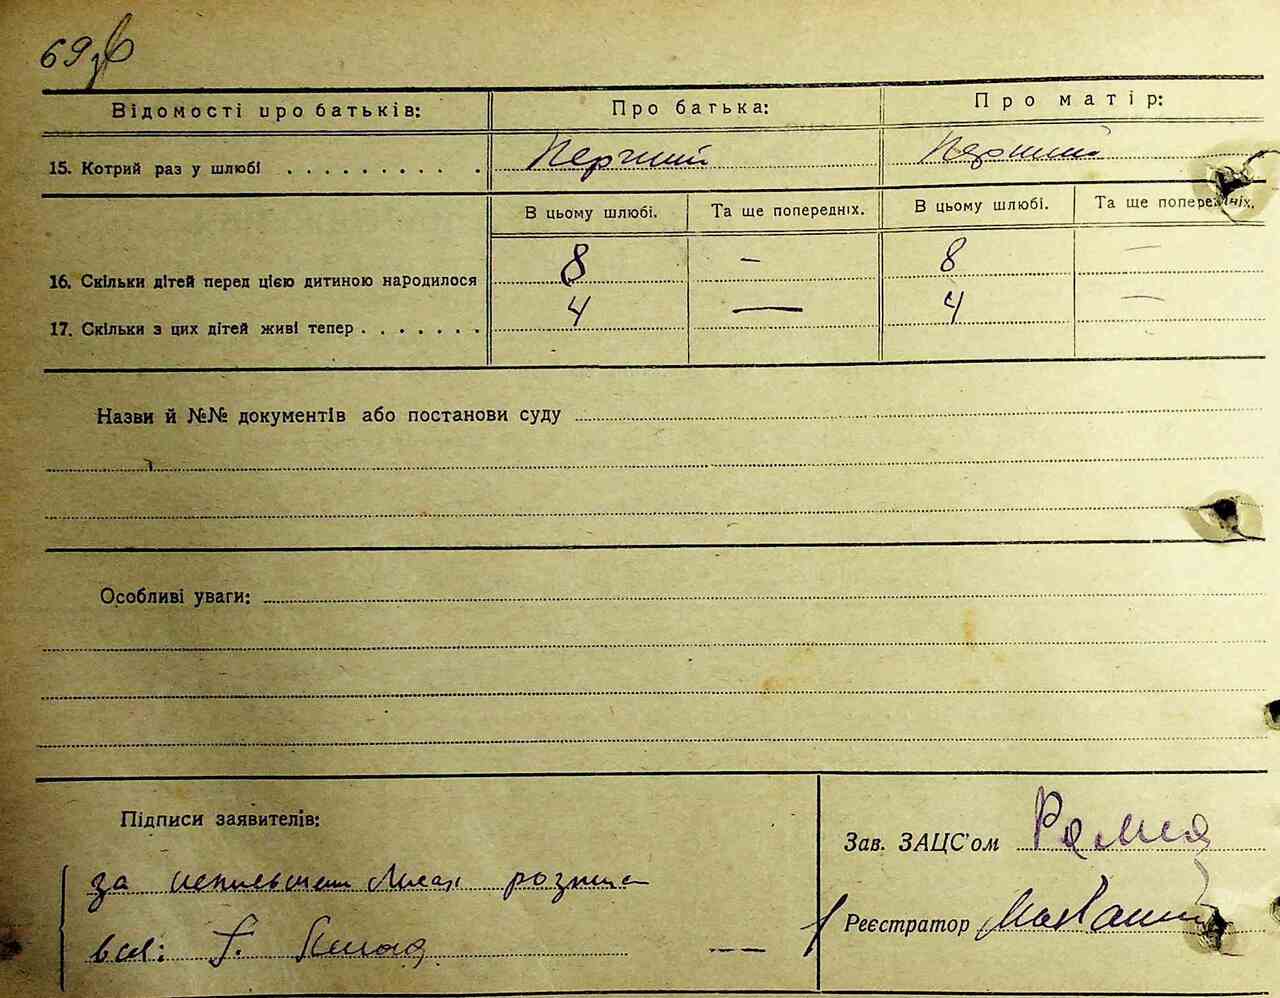 69
Відомості про батьків: Про батька: Про матір:
15. Котрий раз у шлюбі . . . . . . . . . . Перший Перший
В цьому шлюбі. Та ще попередніх. В цьому шлюбі. Та ще попередніх.
16. Скільки дітей перед цією дитиною народилося 8 – 8 –
17. Скільки з цих дітей живі тепер . . . . . . . 4 — 4 —
Назви й №№ документів або постанови суду
Особливі уваги:
Підписи заявителів:
Зав. ЗАЦС'ом
за розписа
Реєстратор